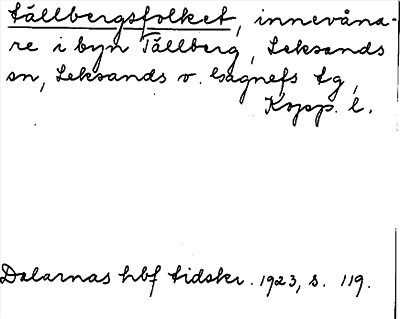 tällbergsfolket, innevåna-
re i byn Tällberg, Leksands
sn, Leksands o. Gagnefs tg,
Kopp. l.
Dalarnas hbf tidskr. 1923, s. 119.